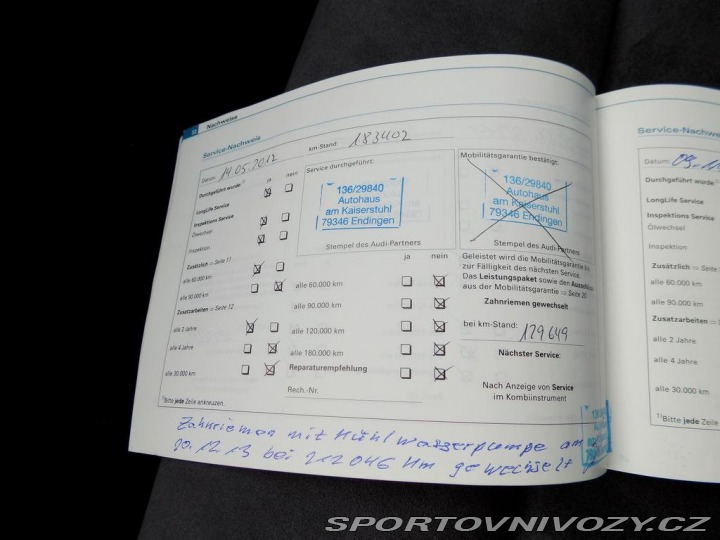 32 Nachweise
Service-Nachweis
Datum: 14.05.2012
km-Stand: 183402
ja nein
Durchgeführt wurde:
LongLife Service
Inspektions Service
Ölwechsel
Inspektion
Zusätzlich ⇒ Seite 11
alle 60.000 km
alle 90.000 km
Zusatzarbeiten ⇒ Seite 12
alle 2 Jahre
alle 4 Jahre
alle 30.000 km
1) Bitte jede Zeile ankreuzen.
Service durchgeführt:
136/29840
Autohaus
am Kaiserstuhl
79346 Endingen
Stempel des Audi-Partners
ja nein
alle 60.000 km
alle 90.000 km
alle 120.000 km
alle 180.000 km
Reparaturempfehlung
Rech.-Nr.
Mobilitätsgarantie bestätigt:
136/29840
Autohaus
am Kaiserstuhl
79346 Endingen
Stempel des Audi-Partners
Geleistet wird die Mobilitätsgarantie bis
zur Fälligkeit des nächsten Service.
Das Leistungspaket sowie den
aus der Mobilitätsgarantie ⇒ Seite 20
Zahnriemen gewechselt
bei km-Stand: 129649
Nächster Service:
Nach Anzeige von Service
im Kombiinstrument
Zahnriemen mit Kühlwasserpumpe am
20.12.13 bei 212046 Km gewechselt
Service-Nachweis
Datum:
Durchgeführt wurde:
LongLife Service
Inspektions Service
Ölwechsel
Inspektion
Zusätzlich ⇒ Seite
alle 60.000 km
alle 90.000 km
Zusatzarbeiten ⇒
alle 2 Jahre
alle 4 Jahre
alle 30.000 km
1) Bitte jede Zeile
SPORTOVNIVOZY.CZ